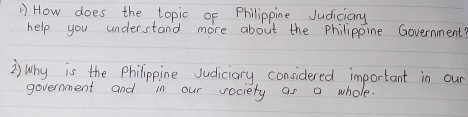 1) How does the topic of Philippine Judiciary
help you understand more about the Philippine Government?
2) Why is the Philippine Judiciary considered important in our
government and in our society as a whole.